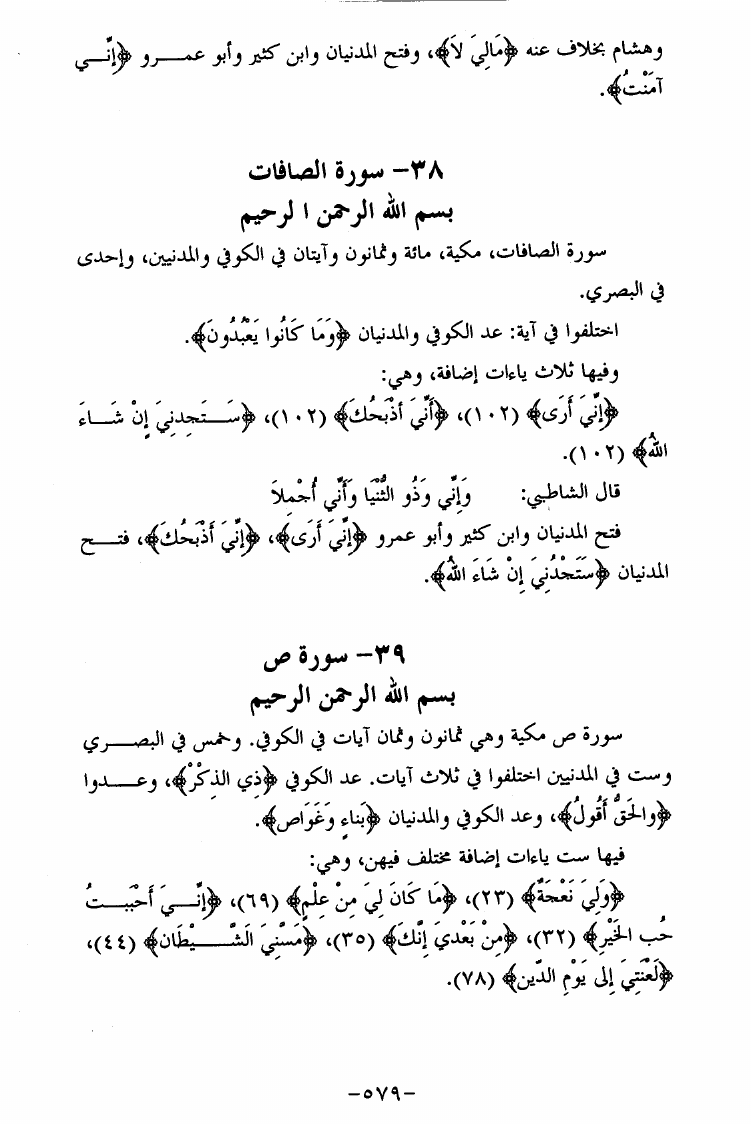 وهشام بخلاف عنه ﴿مَالِيَ لاَ﴾، وفتح المدنيان وابن كثير وأبو عمـــرو ﴿إنّــي
آمَنْتُ﴾.
٣٨- سورة الصافات
بسم الله الرحمن الرحيم
سورة الصافات، مكية، مائة وثمانون وآيتان في الكوفي والمدنيين، وإحدى
في البصري.
اختلفوا في آية: عد الكوفي والمدنيان ﴿وَمَا كَانُوا يَعْبُدُونَ﴾.
وفيها ثلاث ياءات إضافة، وهي:
﴿إنّيَ أرَى﴾ (١٠٢)، ﴿أَنّيَ أذْبَحُكَ﴾ (١٠٢)، ﴿سَــتَجِدنِيَ إِنْ شَــاءَ
اللهُ﴾ (١٠٢).
قال الشاطبي: وَإِنّي وَذُو الثُّنْيَا وَأَنّي أُجْمِلاَ
فتح المدنيان وابن كثير وأبو عمرو ﴿إنّيَ أَرَى﴾، ﴿إنّيَ أَذْبَحُكَ﴾، فتــح
المدنيان ﴿سَتَجْدُنِيَ إنْ شَاءَ اللهُ﴾.
٣٩- سورة ص
بسم الله الرحمن الرحيم
سورة ص مكية وهي ثمانون وثمان آيات في الكوفي. وخمس في البصـــري
وست في المدنيين اختلفوا في ثلاث آيات. عد الكوفي ﴿ذِي الذِكْرْ﴾، وعـــدوا
﴿والحَقُّ أَقُولُ﴾، وعد الكوفي والمدنيان ﴿بَناءٍ وَغَوَاصٍ﴾.
فيها ست ياءات إضافة مختلف فيهن، وهي:
﴿وَلِيَ نَعْجَةٌ﴾ (٢٣)، ﴿مَا كَانَ لِيَ مِنْ عِلْمٍ﴾ (٦٩)، ﴿إنّــيَ أَحْبَبــتُ
حُب الخَيْرِ﴾ (٣٢)، ﴿مِنْ بَعْدِيَ إنّكَ﴾ (٣٥)، ﴿مَسّنِيَ الشَّــيْطَان﴾ (٤٤)،
﴿لَعْنَتِيَ إلى يَوْمِ الدّين﴾ (٧٨).
-٥٧٩-